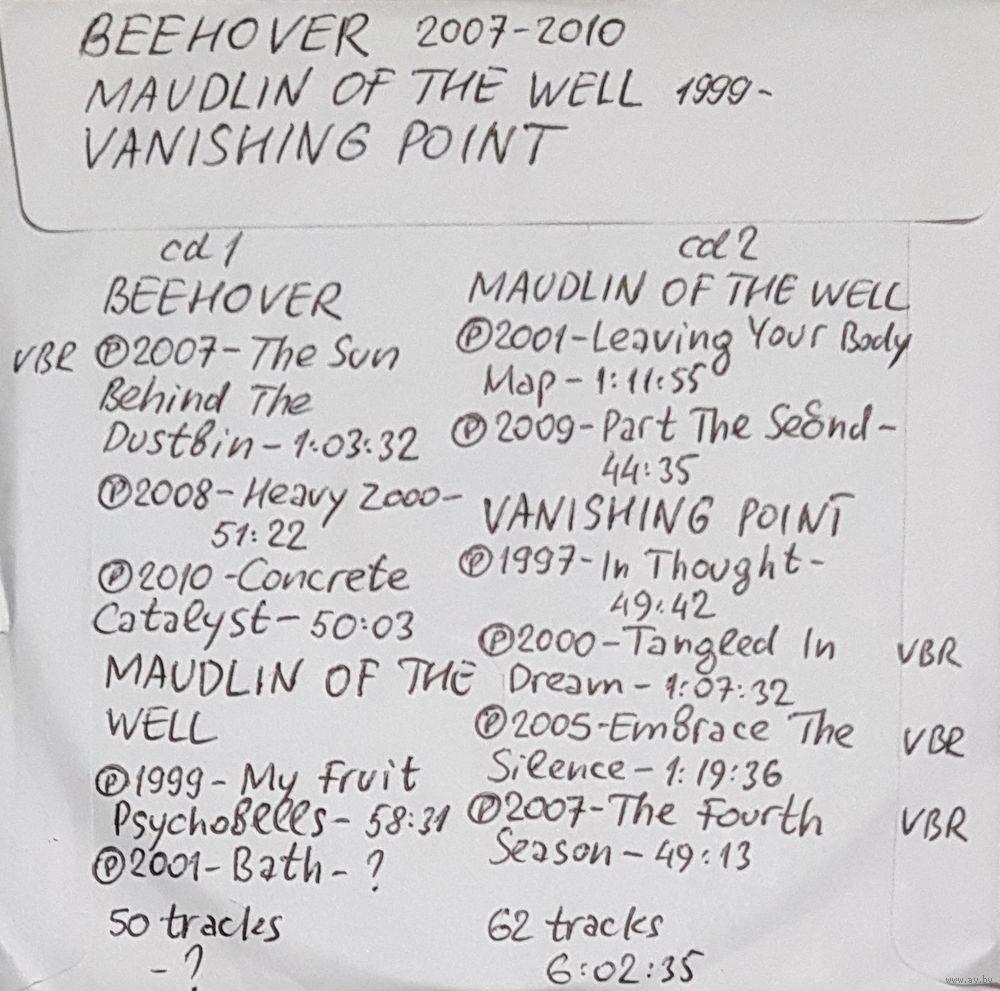 BEEHOVER 2007-2010
MAUDLIN OF THE WELL 1999-
VANISHING POINT
cd 1
BEEHOVER
VBR Ⓟ2007-The Sun
Behind The
Dustbin-1:03:32
Ⓟ2008-Heavy Zooo-
51:22
Ⓟ2010-Concrete
Catalyst-50:03
MAUDLIN OF THE
WELL
Ⓟ1999-My Fruit
Psychobells-58:31
Ⓟ2001-Bath-?
50 tracks
-?
cd 2
MAUDLIN OF THE WELL
Ⓟ2001-Leaving Your Body
Map-1:11:55
Ⓟ2009-Part The Second-
44:35
VANISHING POINT
Ⓟ1997-In Thought-
49:42
Ⓟ2000-Tangled In VBR
Dream-1:07:32
Ⓟ2005-Embrace The VBR
Silence-1:19:36
Ⓟ2007-The Fourth VBR
Season-49:13
62 tracks
6:02:35
www.ay.by